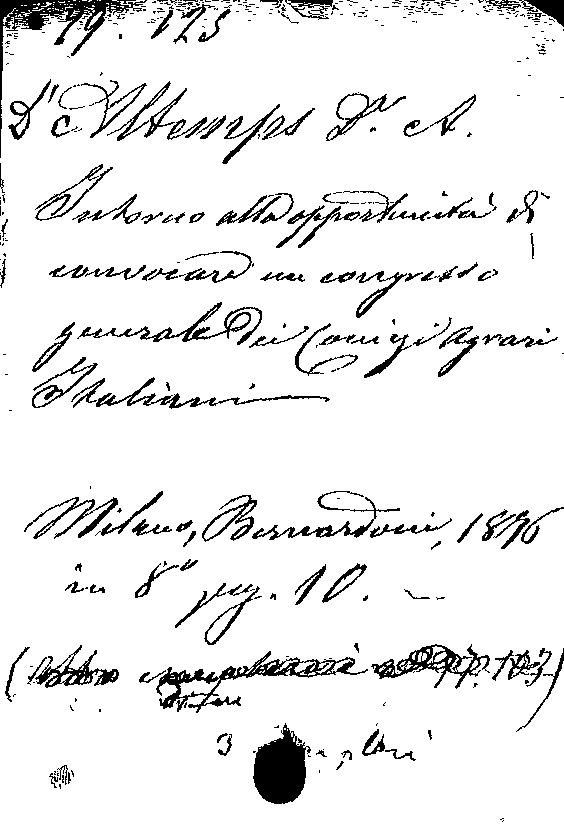 19. 123
D'Altemps Dr. A.
Intorno alla opportunità di
convocare un congresso
generale dei Comizi Agrari
Italiani
Milano, Bernardoni, 1876
in 8° pag. 10.
3